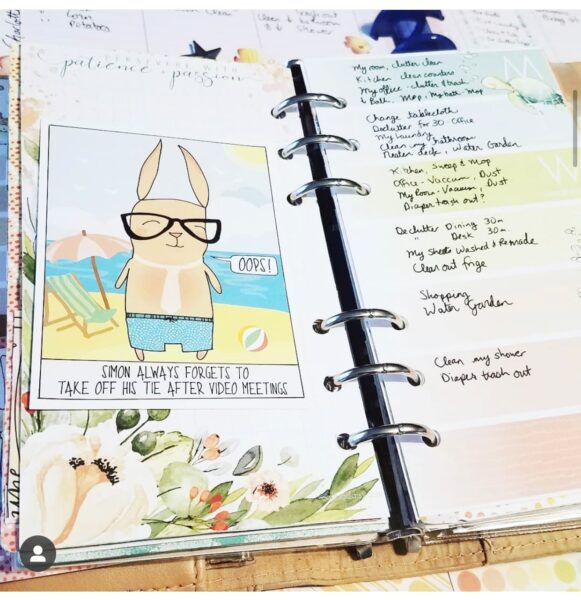 Potatoes
patience, passion
OOPS!
SIMON ALWAYS FORGETS TO
TAKE OFF HIS TIE AFTER VIDEO MEETINGS
M
My room, clutter clean
Kitchen clean counters
My office, clutter & trash
& Bath, Mop, My bath Mop
Change tablecloth
Declutter for 30 Office
My Laundry
Clean my bathroom
Neaten deck, Water Garden
W
Kitchen, Sweep & Mop
Office - Vaccum, Dust
My Room - Vacuum, Dust
Diaper trash out?
Declutter Dining 30m
" Desk 30m
My Sheets Washed & Remade
Clean out frige
Shopping
Water Garden
Clean my shower
Diaper trash out